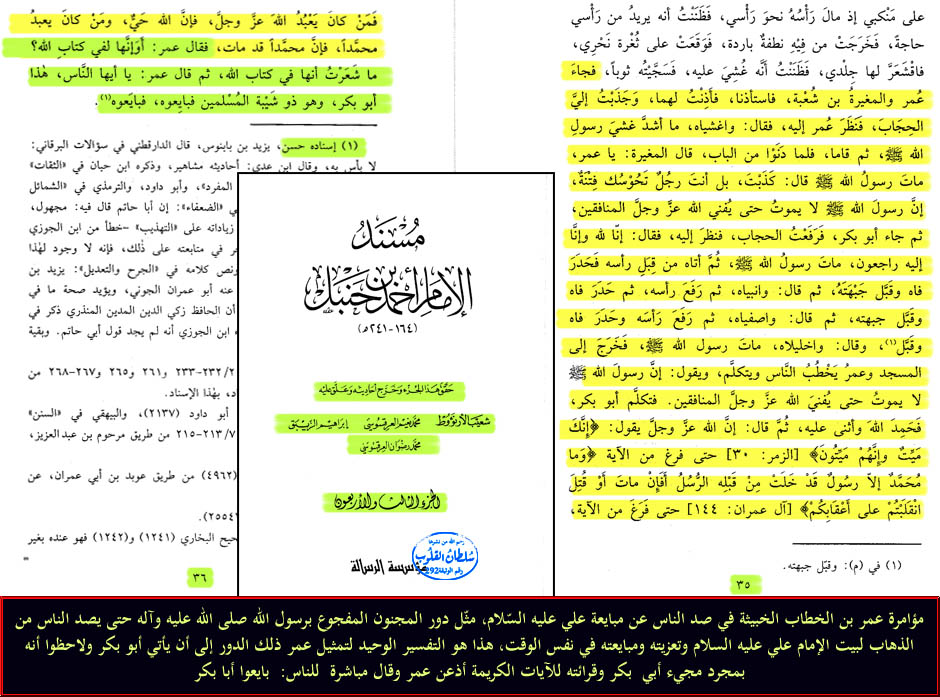 على مَنْكبي إذ مالَ رَأْسُه نحوَ رَأْسي، فَظَنَنْتُ أنه يريدُ من رَأْسي
حاجةً، فَخَرَجَتْ من فِيْهِ نُطفةٌ باردة، فوَقَعَتْ على ثُغْرة نَحْري،
فاقْشَعَرَّ لها جِلْدي، فَظَنَنْتُ أنَّه غُشِيَ عليه، فَسَجَّيْتُه ثوباً، فجاءَ
عُمر والمغيرةُ بن شُعْبة، فاستأذنا، فأَذِنْتُ لهما، وجَذَبْتُ إليَّ
الحِجابَ، فَنَظَرَ عُمر إليه، فقال: واغشياه، ما أشدَّ غشيَ رسولِ
الله ﷺ، ثم قاما، فلما دنَوْا من الباب، قال المغيرة: يا عمر،
ماتَ رسولُ الله ﷺ قال: كَذَبْتَ، بل أنتَ رجُلٌ تَحُوْسُك فِتْنَةٌ،
إنَّ رسولَ الله ﷺ لا يموتُ حتى يُفني الله عزَّ وجلَّ المنافقين.
ثم جاء أبو بكر، فرَفَعْتُ الحجاب، فنظرَ إليه، فقال: إنّا لله وإنَّا
إليه راجعون، ماتَ رسولُ الله ﷺ، ثُمَّ أتاه من قِبَلِ رأسه فَحَدَرَ
فاه وقَبَّلَ جَبْهَتَهُ، ثم قال: وانبياه، ثم رَفَعَ رأسه، ثم حَدَرَ فاه
وقَبَّلَ جبهته، ثم قال: واصفياه، ثم رَفَعَ رَأْسَه وحَدَرَ فاه
وقَبَّل(١)، وقال: واخليلاه، ماتَ رسولُ الله ﷺ، فَخَرَجَ إلى
المسجد وعمرُ يَخْطُبُ الناسَ ويتكلَّم، ويقول: إنَّ رسولَ الله ﷺ
لا يموتُ حتى يُفنيَ الله عزَّ وجلَّ المنافقين. فتكلَّم أبو بكر،
فَحَمِدَ اللهَ وأثنى عليه، ثُمَّ قال: إنَّ الله عزَّ وجلَّ يقول: ﴿إِنَّكَ
مَيِّتٌ وإِنَّهُم مَيِّتُونَ﴾ [الزمر: ٣٠] حتى فرغ من الآية ﴿وَما
مُحَمَّدٌ إلّا رسولٌ قد خَلَتْ مِنْ قَبْلِه الرُّسُلُ أَفَإِنْ ماتَ أَوْ قُتِلَ
انْقَلَبْتُمْ على أَعْقابِكُمْ﴾ [آل عمران: ١٤٤] حتى فَرَغَ من الآية،
(١) في (م): وقبّل جبهته.
٣٥
فَمَنْ كانَ يَعْبُدُ اللهَ عزَّ وجلَّ، فإنَّ الله حَيٌّ، ومَنْ كانَ يعبدُ
محمَّداً، فإنَّ محمَّداً قد مات، فقال عمر: أَوَإِنَّها لَفي كتابِ الله؟
ما شَعَرْتُ أنها في كتاب الله، ثم قال عمر: يا أيها النَّاس، هٰذا
أبو بكر، وهو ذو شَيْبة المُسْلمين فبايِعوه، فبايَعوه(١).
(١) إسناده حسن، يزيد بن بابنوس، قال الدارقطني في سؤالات البرقاني:
لا بأس به، وقال ابن عدي: أحاديثه مشاهير، وذكره ابن حبان في «الثقات»
المفرد»، وأبو داود، والترمذي في «الشمائل
ي «الضعفاء»: إن أبا حاتم قال فيه: مجهول،
زياداته على «التهذيب» -خطأ من ابن الجوزي
ر في متابعته على ذٰلك، فإنه لا وجود لهٰذا
ونص كلامه في «الجرح والتعديل»: يزيد بن
عنه أبو عمران الجوني، ويؤيد صحة ما في
أن الحافظ زكي الدين المنذري ذكر في
ابن الجوزي أنه لم يجد قول أبي حاتم. وبقية
٢/ ٢٣٢-٢٣٣ و٢٦١ و٢٦٥ و٢٦٧-٢٦٨ من
، بهٰذا الإسناد.
أبو داود (٢١٣٧)، والبيهقي في «السنن»
٢١٣/٧-٢١٥ من طريق مرحوم بن عبد العزيز،
(٤٩٦٢) من طريق عوبد بن أبي عمران، عن
(٢٥٥٤
حيح البخاري (١٢٤١) و(١٢٤٢) فهو عنده بغير
=
٣٦
مُسْنَدُ
الإمام أحمد بن حنبل
(١٦٤-٢٤١ هـ)
حقق هذا الجزء وخرج أحاديثه وعلق عليه
شعيب الأرنؤوط محمد نعيم العرقسوسي إبراهيم الزيبق
محمد رضوان العرقسوسي
الجزء الثالث والأربعون
سلطان القلوب
مؤسسة الرسالة
مؤامرة عمر بن الخطاب الخبيثة في صد الناس عن مبايعة علي عليه السّلام، مثّل دور المجنون المفجوع برسول الله صلى الله عليه وآله حتى يصد الناس من
الذهاب لبيت الإمام علي عليه السلام وتعزيته ومبايعته في نفس الوقت، هذا هو التفسير الوحيد لتمثيل عمر ذلك الدور إلى أن يأتي أبو بكر ولاحظوا أنه
بمجرد مجيء أبي بكر وقرائته للآيات الكريمة أذعن عمر وقال مباشرة للناس: بايعوا أبا بكر